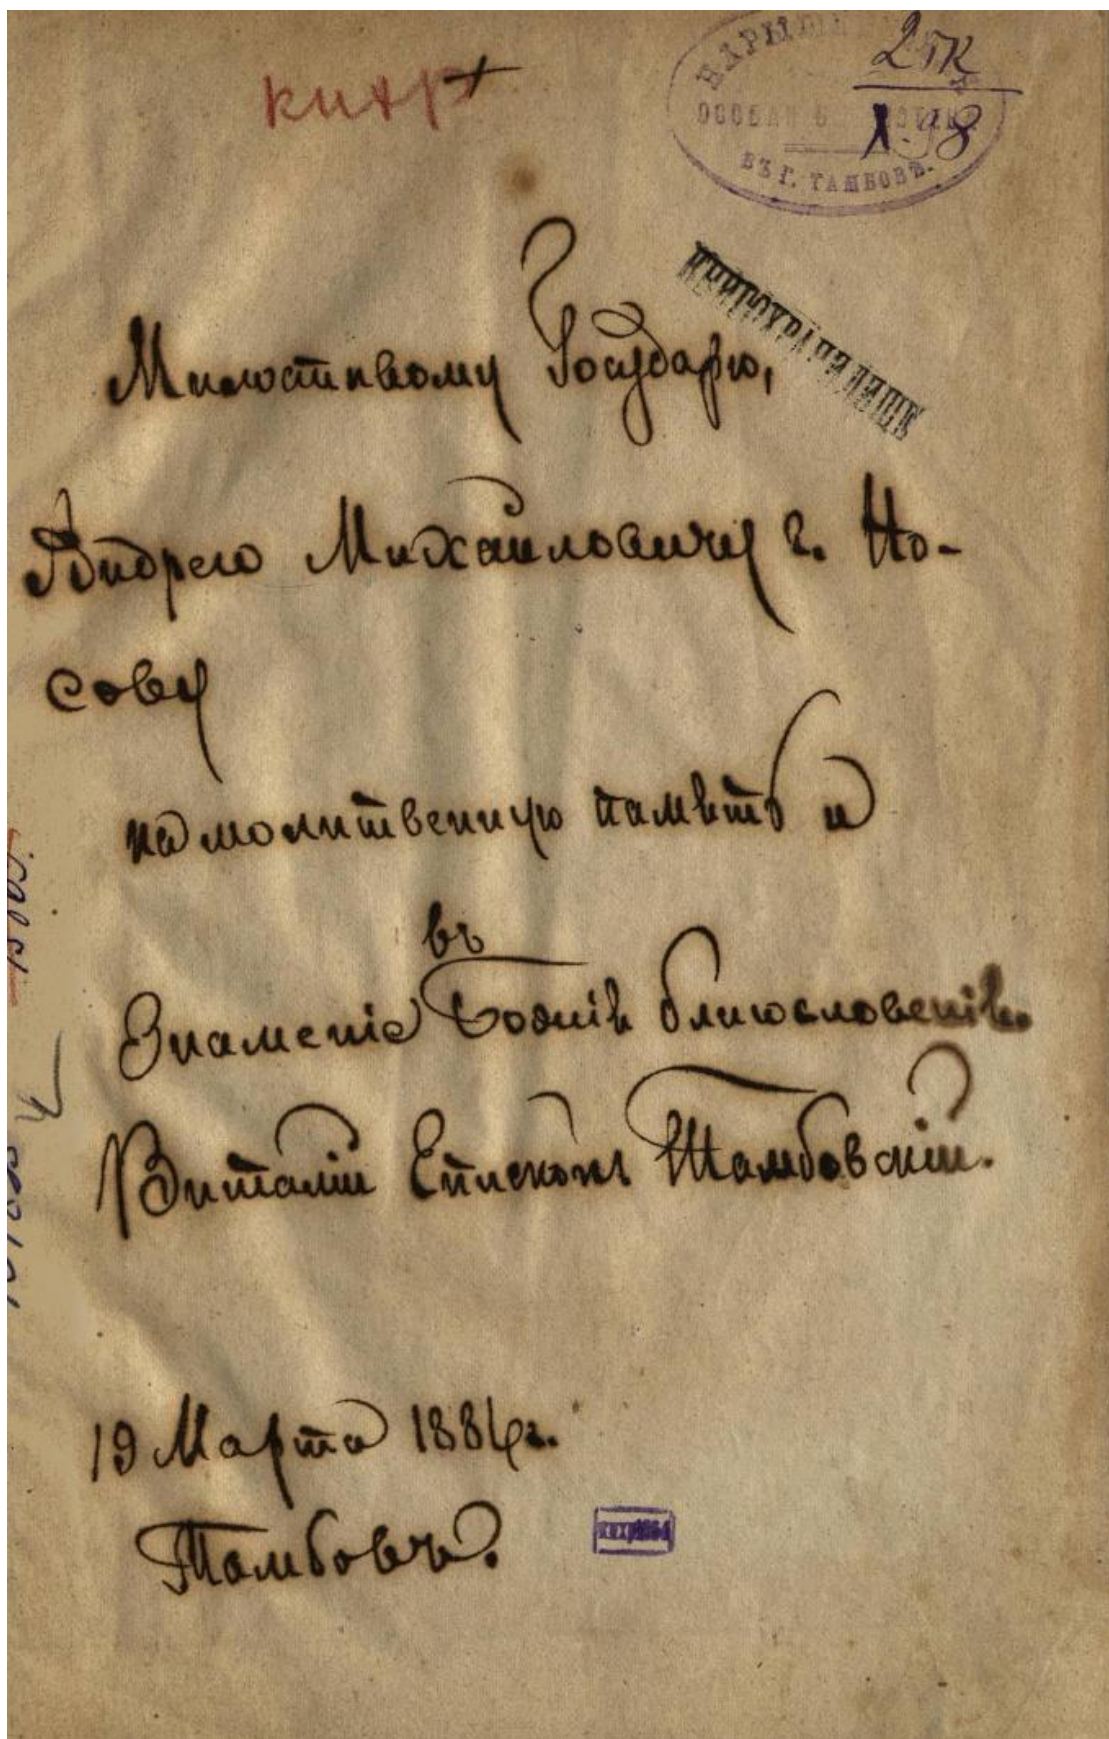 2 5к
X-98
ВЪ Г. ТАМБОВѢ.
КНИГОХРАНИЛИЩЕ
Милостивому Государю,
Андрею Михайловичу г. Но-
сову
на молитвенную память и
въ
Знаменіе Божія благословенія.
Виталій Епископъ Тамбовскій.
19 Марта 1884 г.
Тамбовъ.